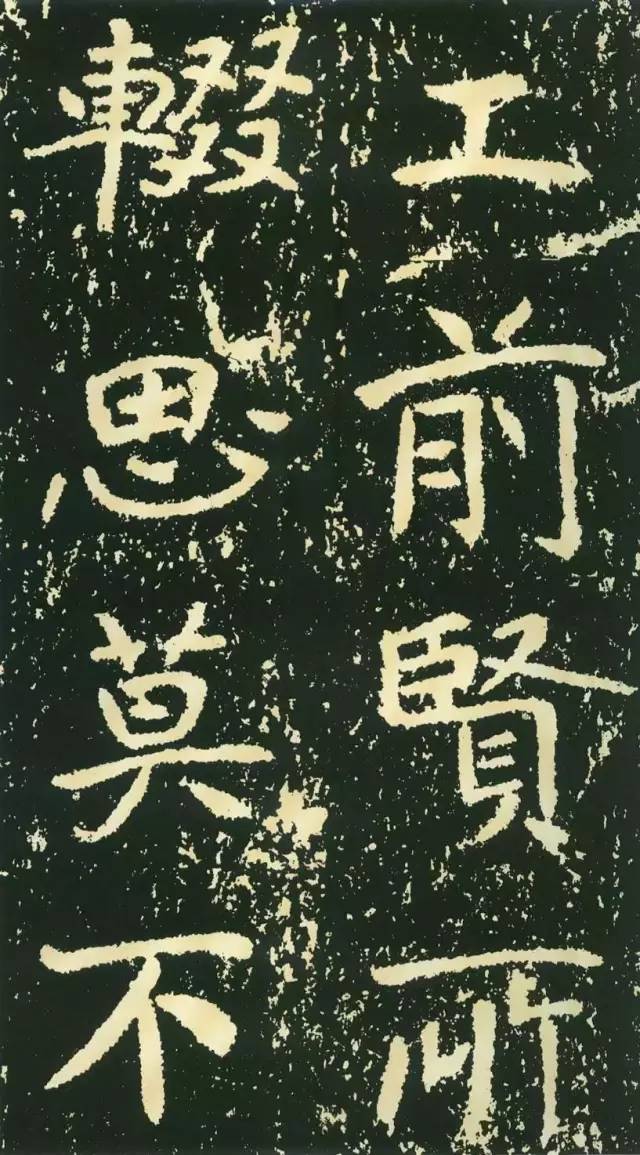 工前賢所
輟思莫不